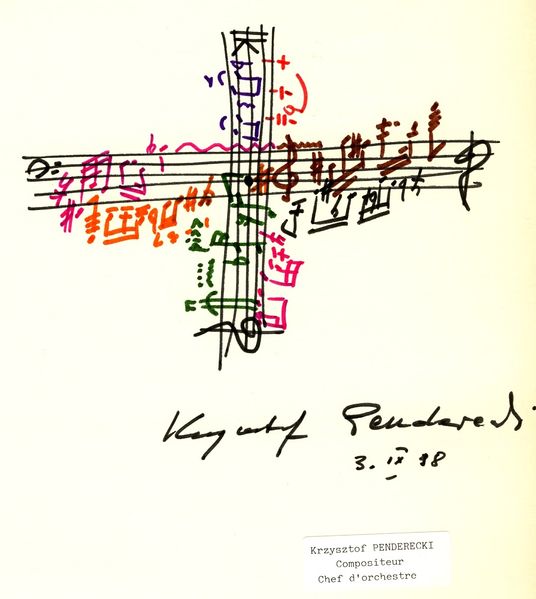 Krzysztof Penderecki
3. IX 98
Krzysztof PENDERECKI
Compositeur
Chef d'orchestre